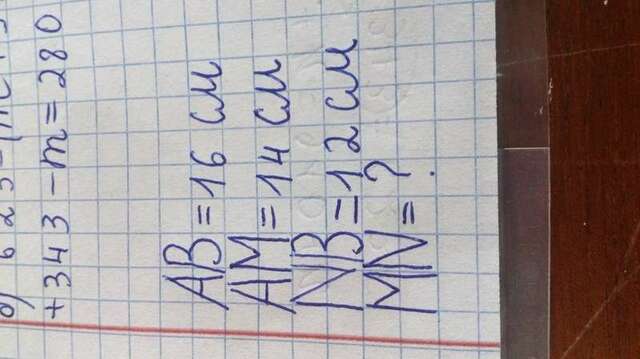 б) 623-(m+3
+343-m=280
AB=16 см
AM=14 см
NB=12 см
MN=?